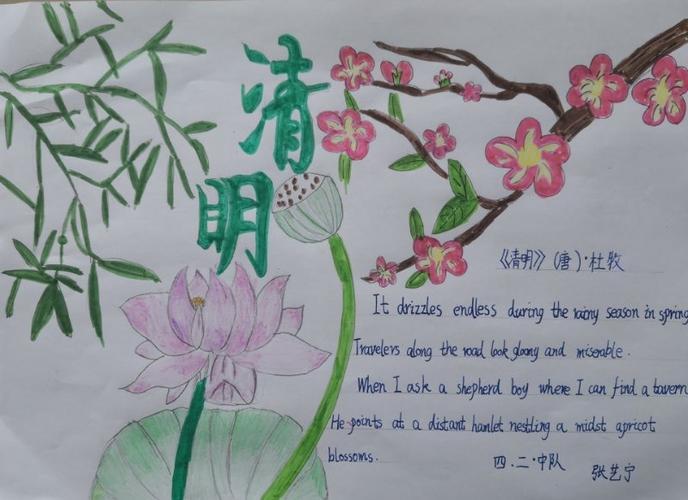 清
明
《清明》(唐)·杜牧
It drizzles endless during the rainy season in spring
Travelers along the road look gloomy and miserable.
When I ask a shepherd boy where I can find a tavern
He points at a distant hamlet nestling a midst apricot
blossoms.
四.二.中队 张艺宁